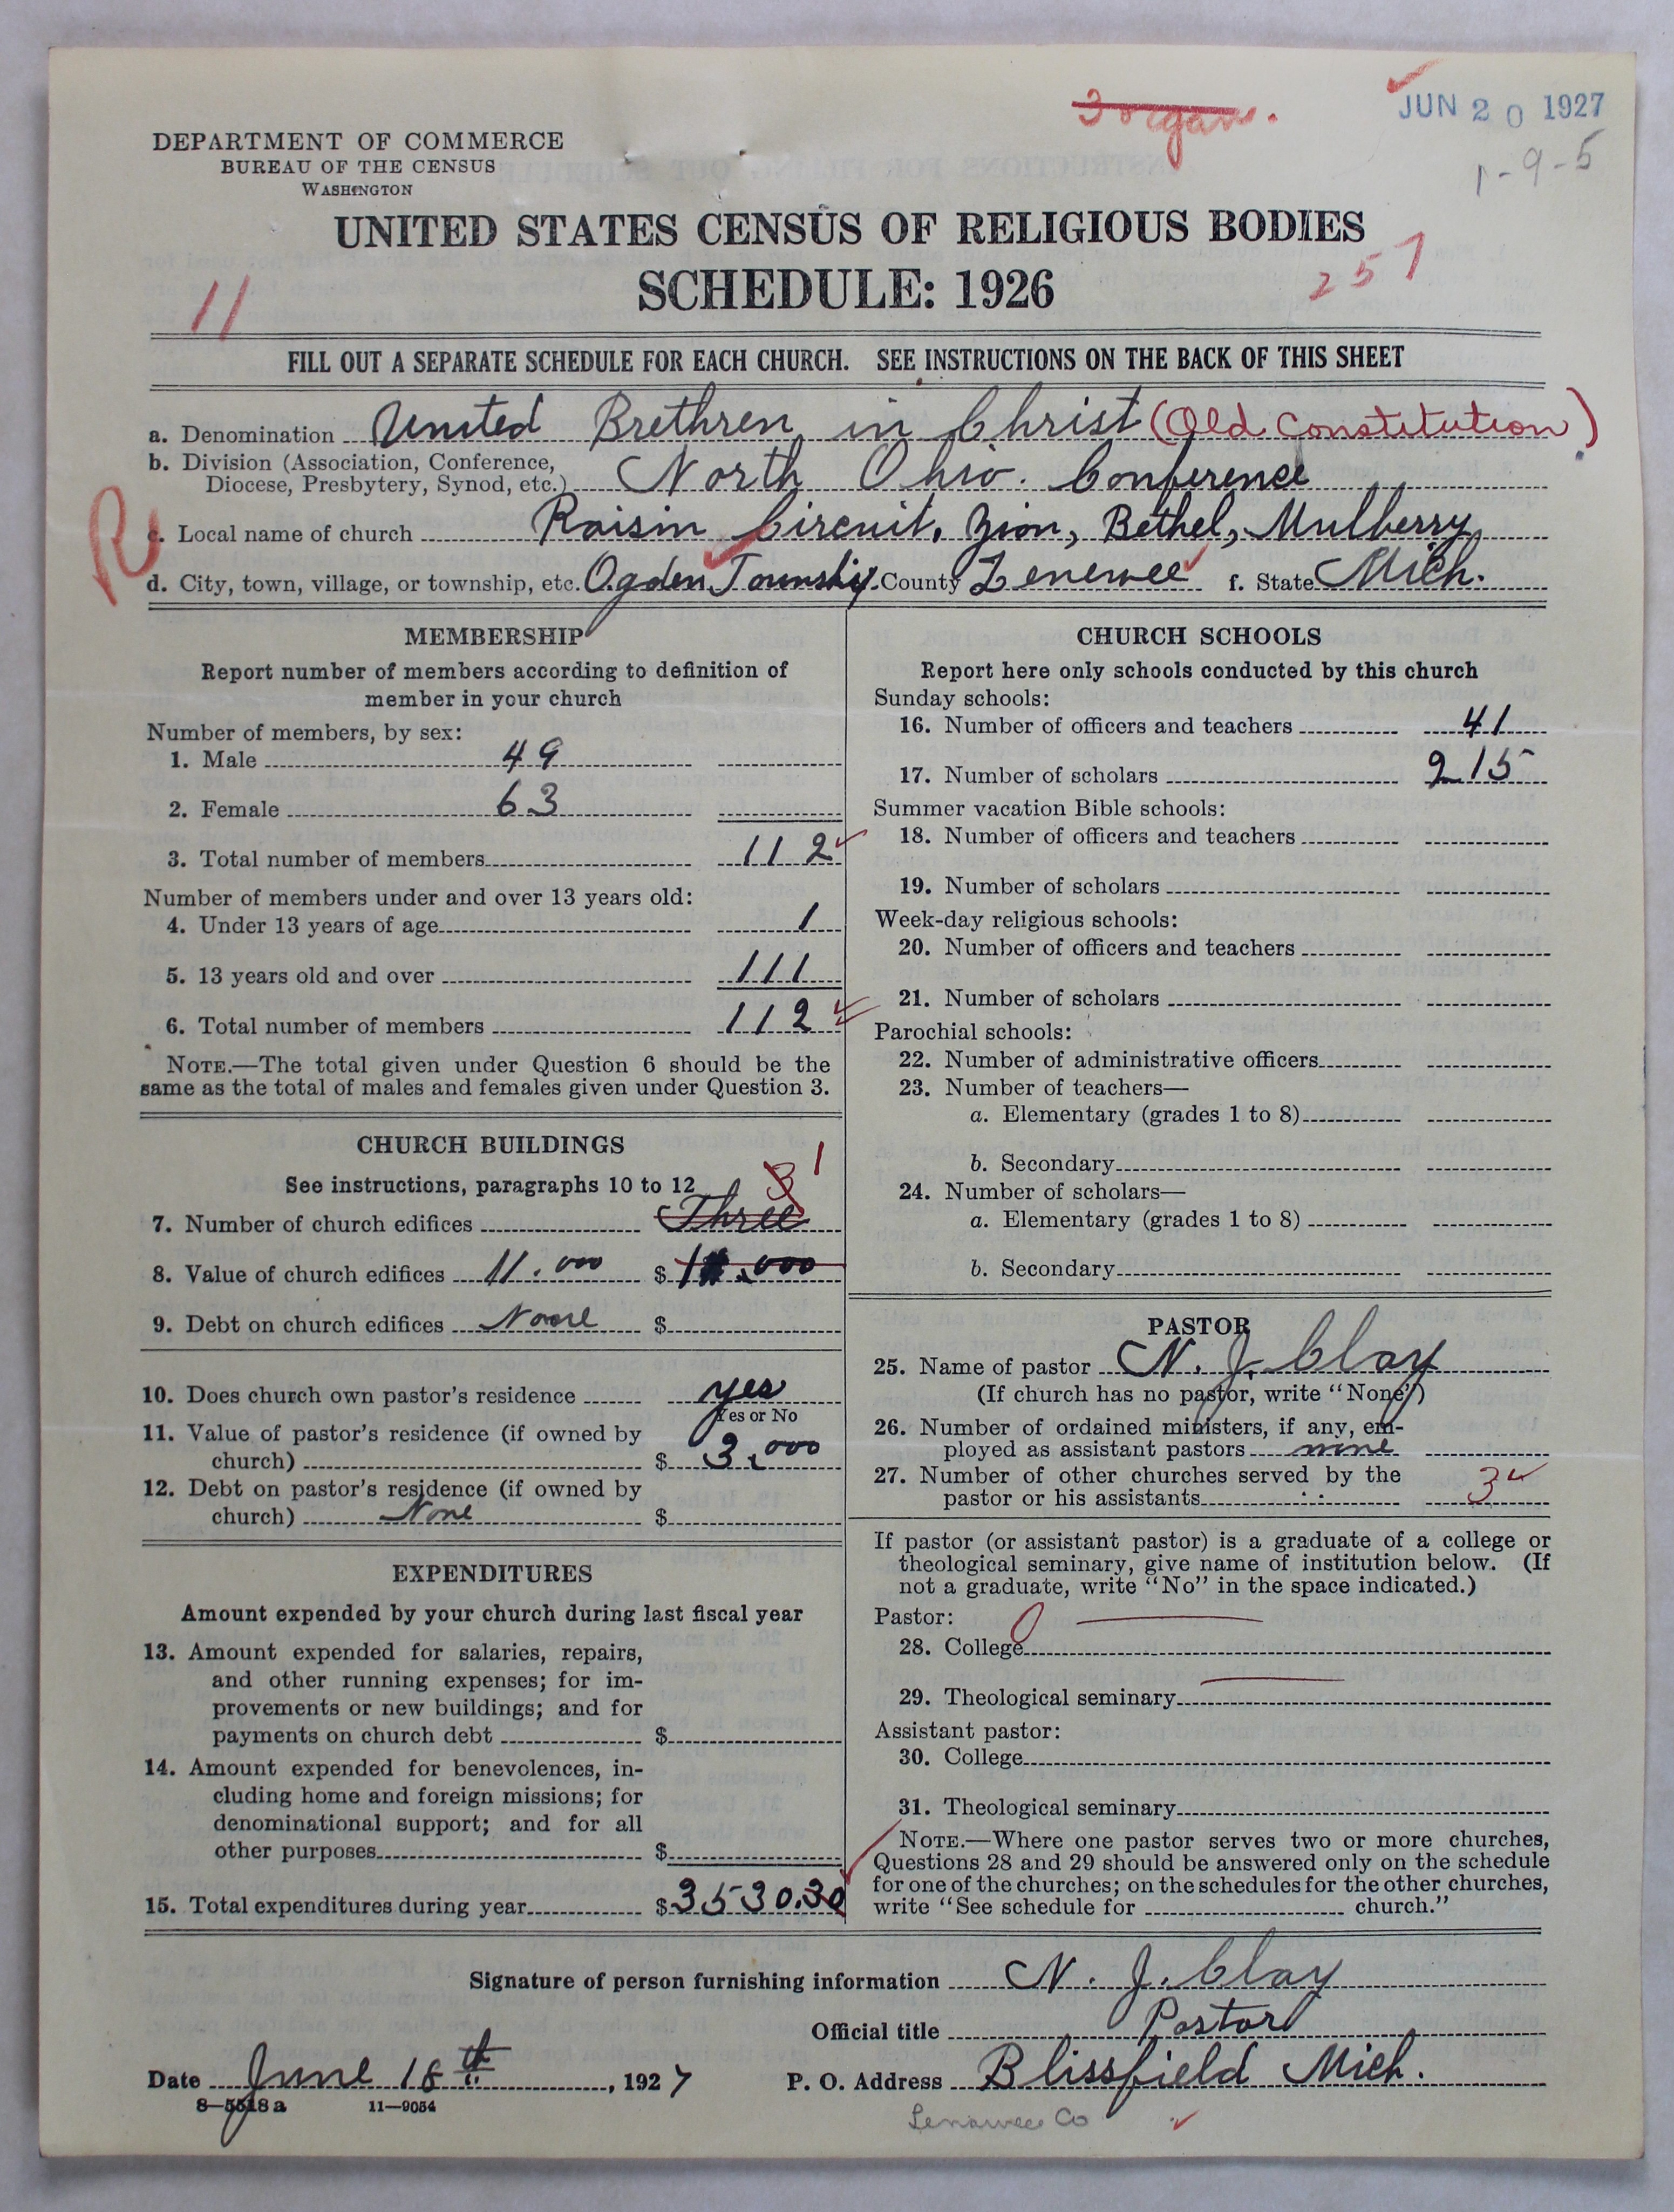 3 organs.
JUN 20 1927
1-9-5
DEPARTMENT OF COMMERCE
BUREAU OF THE CENSUS
WASHINGTON
UNITED STATES CENSUS OF RELIGIOUS BODIES
SCHEDULE: 1926
257
11
FILL OUT A SEPARATE SCHEDULE FOR EACH CHURCH. SEE INSTRUCTIONS ON THE BACK OF THIS SHEET
a. Denomination United Brethren in Christ (Old Constitution)
b. Division (Association, Conference,
Diocese, Presbytery, Synod, etc.) North Ohio. Conference
R
c. Local name of church Raisin Circuit, Zion, Bethel, Mulberry
d. City, town, village, or township, etc. Ogden Township County Lenewee f. State Mich.
MEMBERSHIP
Report number of members according to definition of
member in your church
Number of members, by sex:
1. Male 49
2. Female 63
3. Total number of members 112
Number of members under and over 13 years old:
4. Under 13 years of age 1
5. 13 years old and over 111
6. Total number of members 112
NOTE.—The total given under Question 6 should be the
same as the total of males and females given under Question 3.
CHURCH BUILDINGS
See instructions, paragraphs 10 to 12
3 1
7. Number of church edifices Three
8. Value of church edifices 11.000 $ 11.000
9. Debt on church edifices None $
10. Does church own pastor's residence yes
Yes or No
11. Value of pastor's residence (if owned by
church) $ 3,000
12. Debt on pastor's residence (if owned by
church) None $
EXPENDITURES
Amount expended by your church during last fiscal year
13. Amount expended for salaries, repairs,
and other running expenses; for im-
provements or new buildings; and for
payments on church debt $
14. Amount expended for benevolences, in-
cluding home and foreign missions; for
denominational support; and for all
other purposes $
15. Total expenditures during year $ 3530.30
CHURCH SCHOOLS
Report here only schools conducted by this church
Sunday schools:
16. Number of officers and teachers 41
17. Number of scholars 215
Summer vacation Bible schools:
18. Number of officers and teachers
19. Number of scholars
Week-day religious schools:
20. Number of officers and teachers
21. Number of scholars
Parochial schools:
22. Number of administrative officers
23. Number of teachers—
a. Elementary (grades 1 to 8)
b. Secondary
24. Number of scholars—
a. Elementary (grades 1 to 8)
b. Secondary
PASTOR
25. Name of pastor N. J. Clay
(If church has no pastor, write "None")
26. Number of ordained ministers, if any, em-
ployed as assistant pastors none
27. Number of other churches served by the
pastor or his assistants 3
If pastor (or assistant pastor) is a graduate of a college or
theological seminary, give name of institution below. (If
not a graduate, write "No" in the space indicated.)
Pastor: 0
28. College
29. Theological seminary
Assistant pastor:
30. College
31. Theological seminary
NOTE.—Where one pastor serves two or more churches,
Questions 28 and 29 should be answered only on the schedule
for one of the churches; on the schedules for the other churches,
write "See schedule for church."
Signature of person furnishing information N. J. Clay
Official title Pastor
Date June 18th, 1927 P. O. Address Blissfield Mich.
8—5518 a 11—9054
Lenawee Co